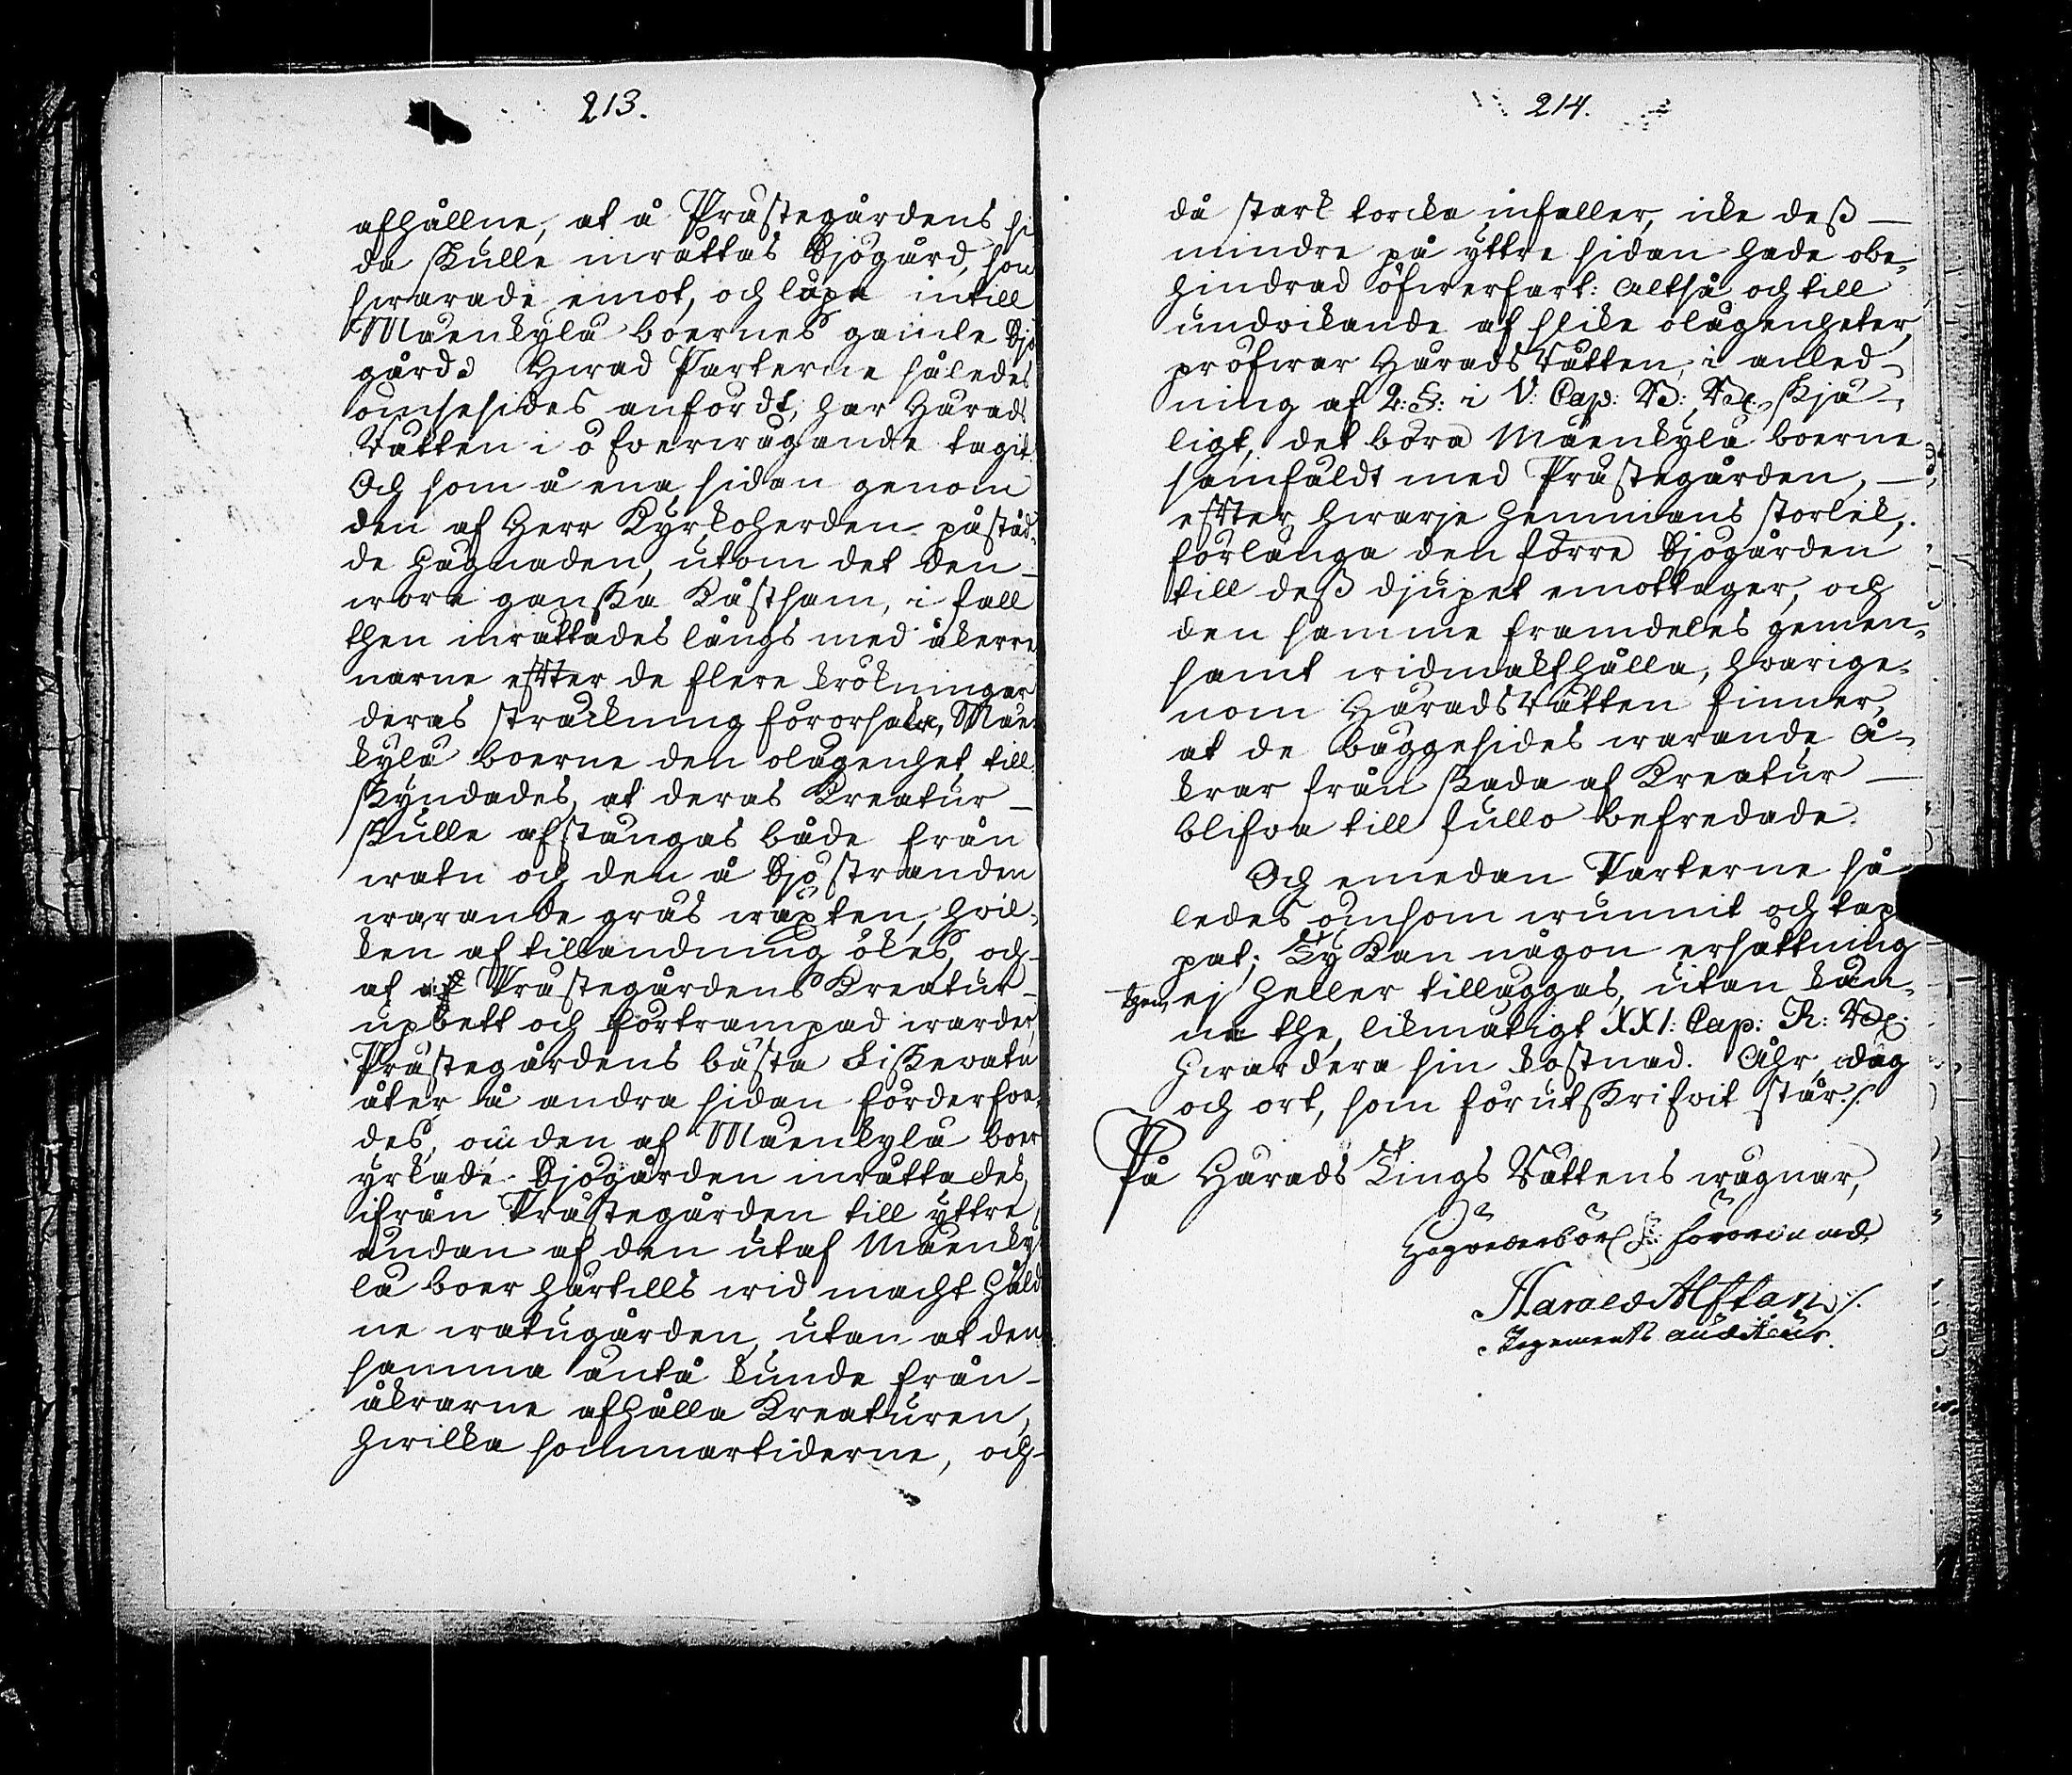 213.
afhållne, at å Prästegårdens si
da skulle inrättas Sjögård, som
swarade emot, och låpe intill
Mäenkylä boernes gamle Sjö
gård. Hwad Parterne således
ömsesides anfördt, har Härads
Rätten i öfwerwägande tagit.
Och som å ena sidan genom
den af Herr Kyrkoherden påståd-
de hägnaden, utom det den
wore ganska kåstsam, i fall
then inrättades långs med åkerre
narne effter de flere krökningar
deras sträckning förorsaka, Mäen
kylä boerne den olägenhet till
skyndades, at deras Kreatur
skulle afstängas både från
watn och den å Sjöstranden
warande gräs wäxten, hvil-
ken af tillandning ökes, och
af af Prästegårdens Kreatur
upbett och förtrampad warder,
Prästegårdens bästa Fiskevatn
åter å andra sidan förderfva-
des, om den af Mäenkylä boer
yrkade Sjögården inrättades,
ifrån Prästegården till yttre
ändan af den utaf Mäenky-
lä boer härtills wid macht håld
ne watugården, utan at den
samma ändå kunde från
åkrarne afhålla Kreaturen,
hwilka sommartiderne, och
214.
då stark torcka infaller, icke deß
mindre på yttre sidan hade obe-
hindrad öfwerfart: Altså och till
undvikande af slike olägenheter
pröfwar HäradsRätten, i anled-
ning af 2: §: i V: Cap: B: B: skjä-
ligt, det böra Mäenkylä boerne
samfäldt med Prästegården,
effter hwarje hemmans storlek,
förlänga den förre Sjögården
till deß djupet emottager, och
den samme framdeles gemen-
samt widmakthålla, hvarige-
nom HäradsRätten finner,
at de bäggesides warande Å-
krar från skada af Kreatur
blifva till fullo befredade.
Och emedan Parterne så
ledes ömsom wunnit och tap
pat; Ty kan någon ersättning
them, ej heller tilläggas, utan kän-
na the, likmätigt XXI: Cap: R: B:
hwardera sin kostnad. Åhr, dag
och ort, som förutskrifvit står./.
På Härads Tings Rättens wägnar,
Harald Alftan./.
Regements auditeur.